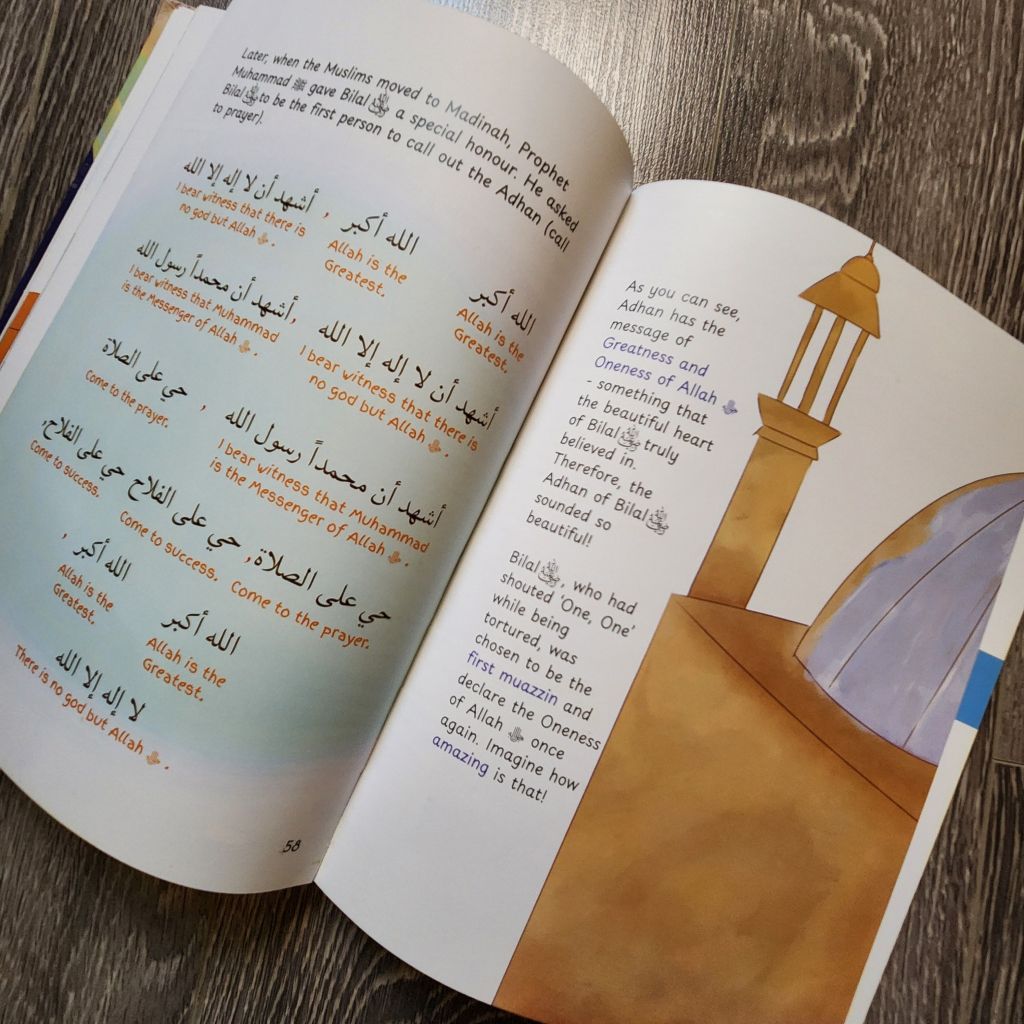 Later, when the Muslims moved to Madinah, Prophet
Muhammad ﷺ gave Bilal رضي الله عنه a special honour. He asked
Bilal رضي الله عنه to be the first person to call out the Adhan (call
to prayer).
الله أكبر
Allah is the
Greatest.
الله أكبر ،
Allah is the
Greatest.
أشهد أن لا إله إلا الله
I bear witness that there is
no god but Allah ﷻ.
أشهد أن لا إله إلا الله
I bear witness that there is
no god but Allah ﷻ.
أشهد أن محمداً رسول الله،
I bear witness that Muhammad
is the Messenger of Allah ﷻ.
أشهد أن محمداً رسول الله ،
I bear witness that Muhammad
is the Messenger of Allah ﷻ.
حي على الصلاة
Come to the prayer.
حي على الصلاة،
Come to the prayer.
حي على الفلاح
Come to success.
حي على الفلاح،
Come to success.
الله أكبر
Allah is the
Greatest.
الله أكبر ،
Allah is the
Greatest.
لا إله إلا الله
There is no god but Allah ﷻ.
58
As you can see,
Adhan has the
message of
Greatness and
Oneness of Allah ﷻ
- something that
the beautiful heart
of Bilal رضي الله عنه truly
believed in.
Therefore, the
Adhan of Bilal رضي الله عنه
sounded so
beautiful!
Bilal رضي الله عنه, who had
shouted 'One, One'
while being
tortured, was
chosen to be the
first muazzin and
declare the Oneness
of Allah ﷻ once
again. Imagine how
amazing is that!